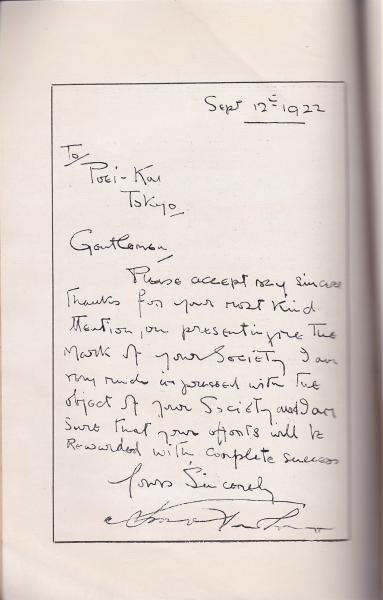 Sept 12th 1922
To/
Poei-Kai
Tokyo
Gentlemen,
Please accept my sincere
thanks for your most kind
attention, on presenting me the
Mark of your Society I am
very much impressed with the
object of your Society and I am
sure that your efforts will be
Rewarded with complete success
Yours Sincerely